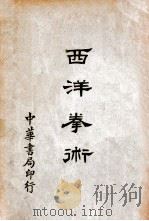 西洋拳術
中華書局印行